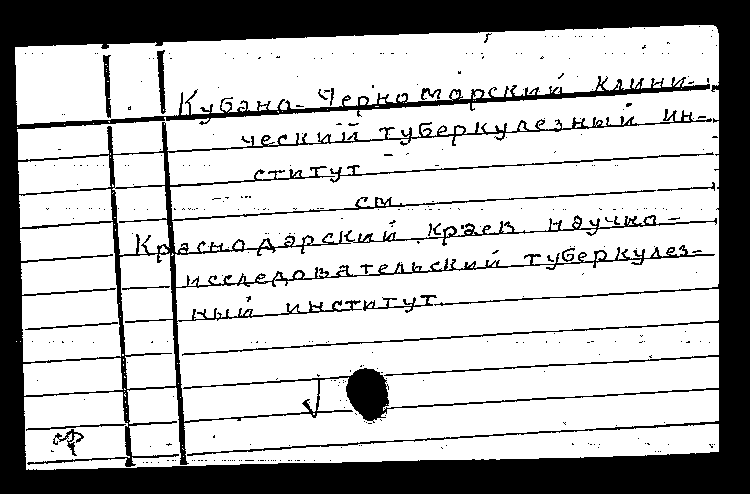 Кубано-Черноморский клини-
ческий туберкулезный ин-
ститут
см.
Краснодарский краев. научно-
исследовательский туберкулез-
ный институт.